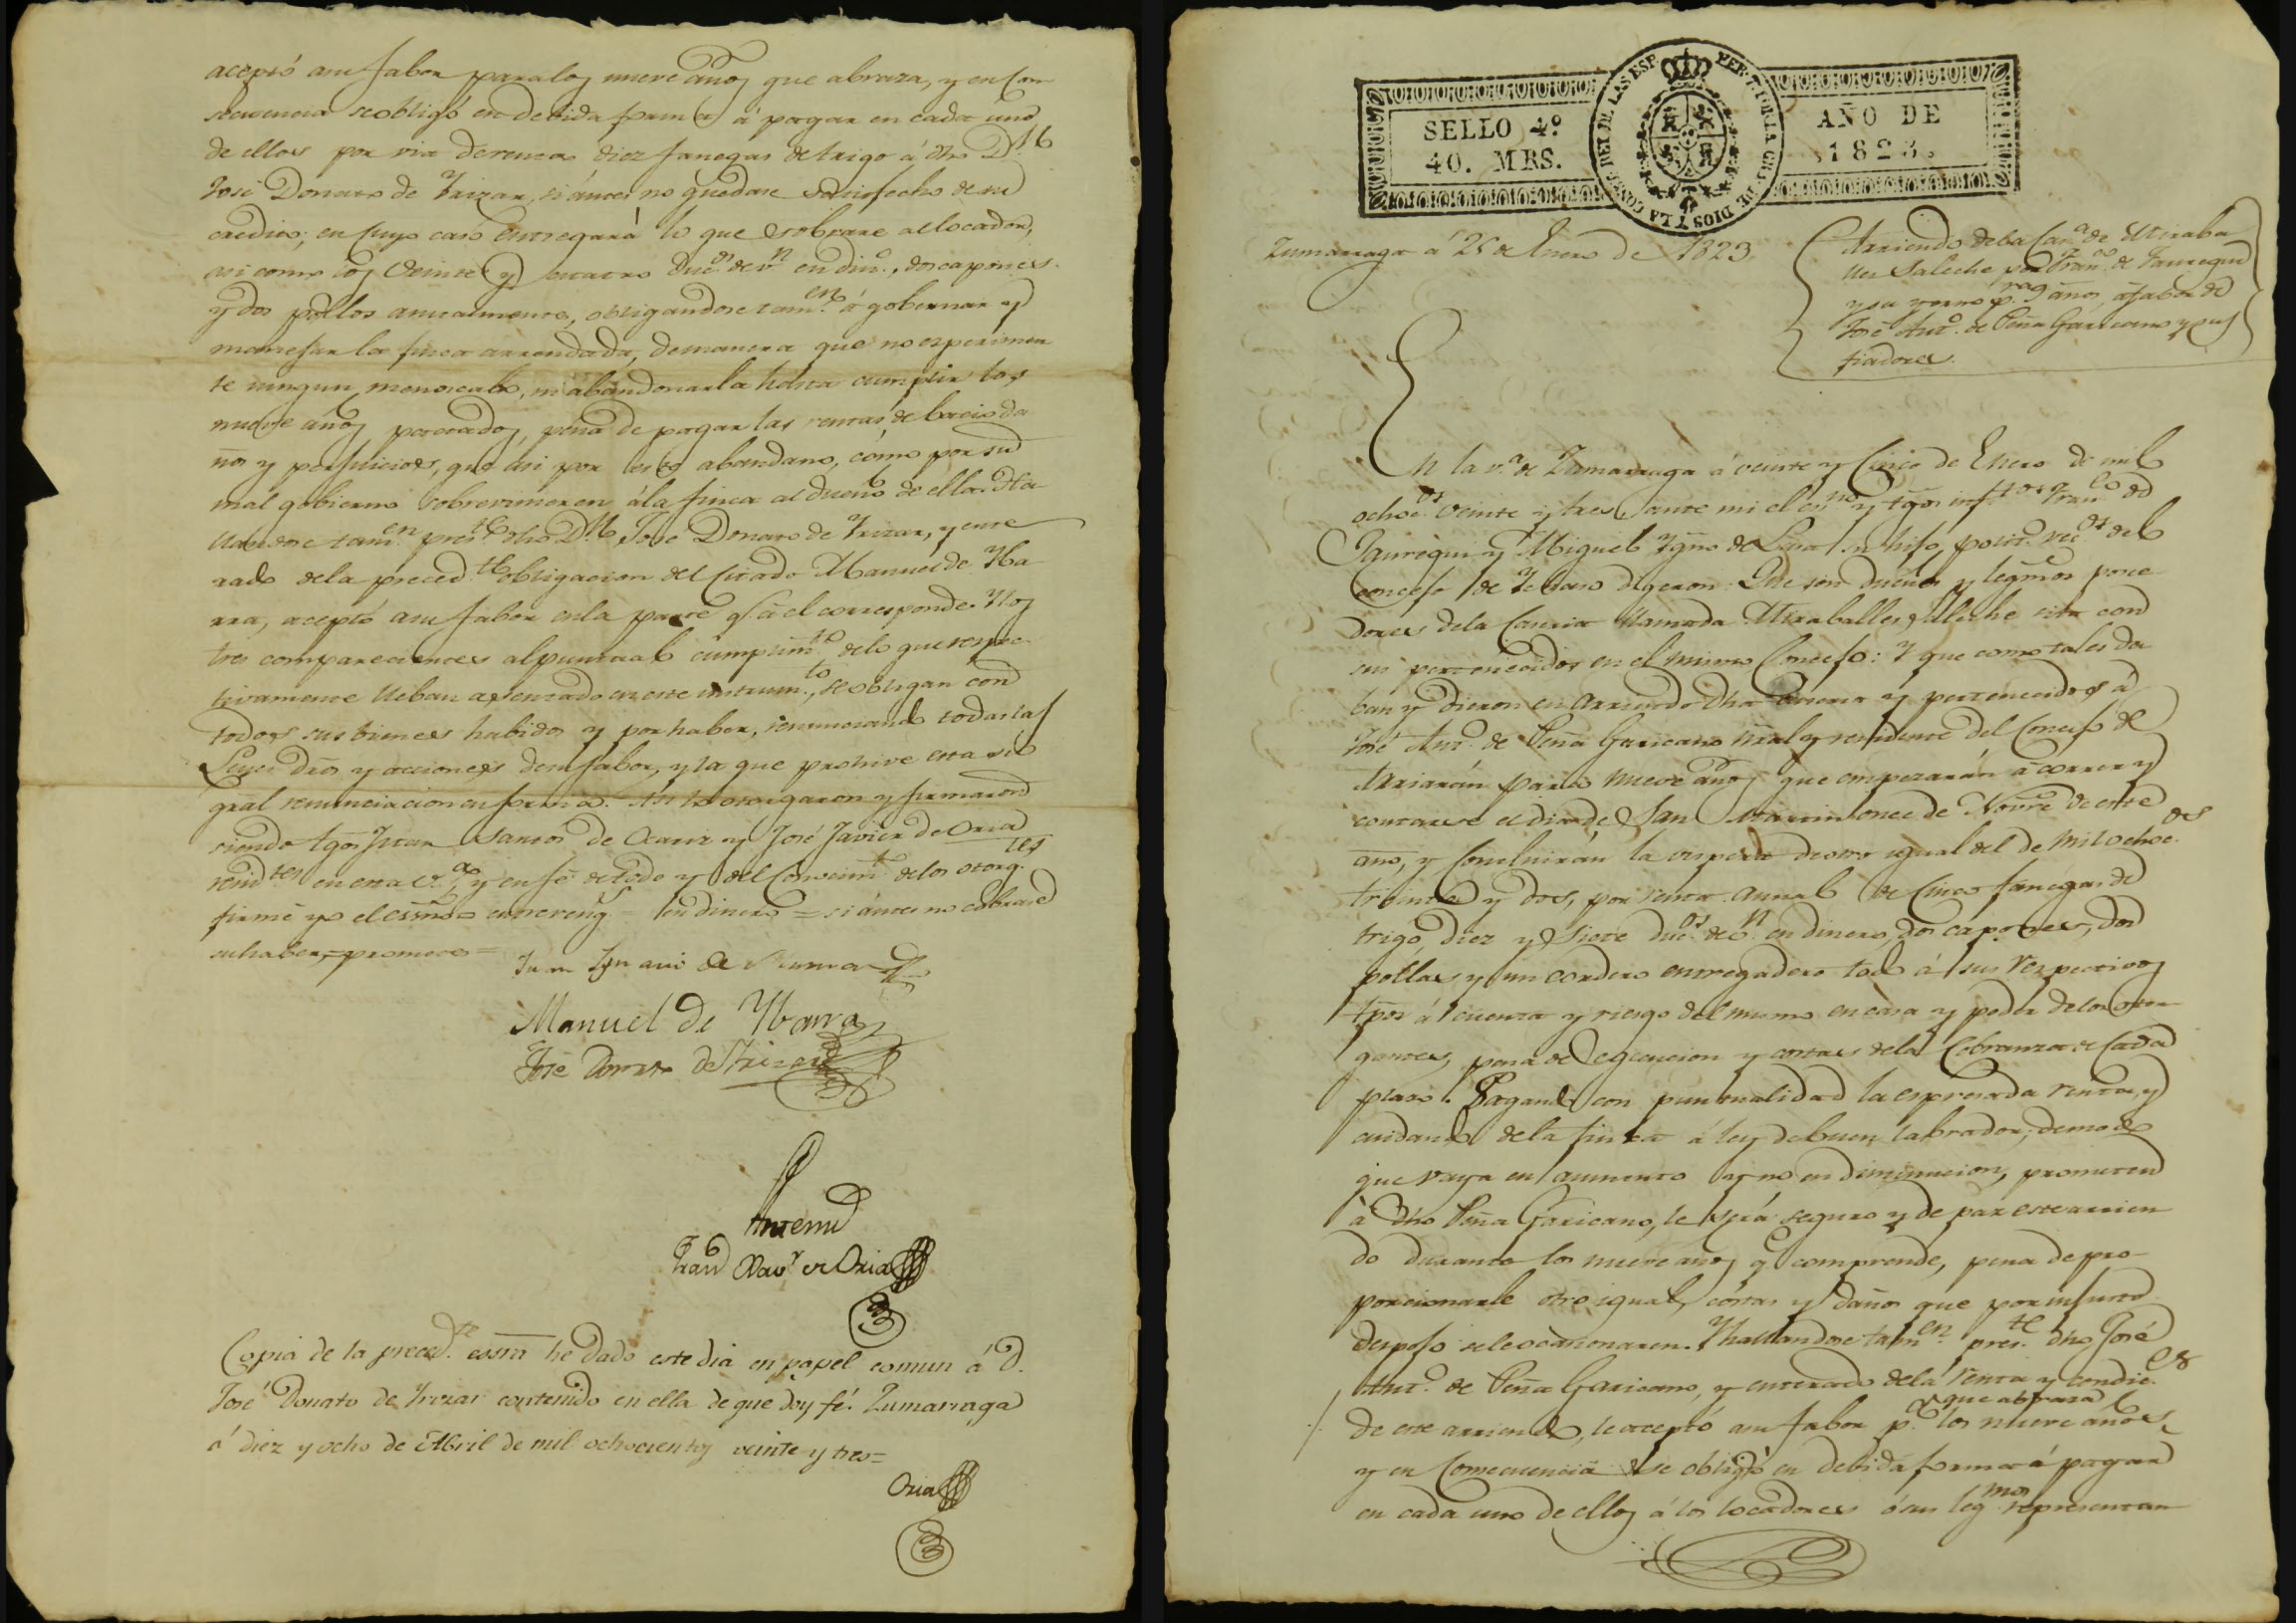 aceptó a su fabor para los nueve años que abraza, y en con
secuencia se obligó en devida forma á pagar en cada uno
de ellos por via de renta diez fanegas de trigo á dho Dn
José Donato de Yrizar, si ántes no quedare satisfecho de su
credito; en cuyo caso entregará lo que sobrare al locador,
asi como los veinte y quatro duc.os de v.n en din.o, dos capones
y dos pollos anualmente, obligandose tam.en á gobernar y
manejar la finca arrendada, de manera que no esperimen
te ningun menoscabo, ni abandonarla hasta cumplir los
nueve años pactados, pena de pagar las rentas de bacio da
ños y perjuicios, que asi por este abandono, cómo por su
mal gobierno sobrevinieren á la finca al dueño de ella. Ha
llandose tam.en pres.te dho Dn José Donato de Yrizar, y ente
rado de la preced.te obligacion del citado Manuel de Yba
rra, aceptó a su fabor en la parte q.e á el corresponde. Y los
tres comparecientes al puntual cumplim.to de lo que respec
tivamente lleban asentado en este instrum.to, se obligan con
todos sus bienes habidos y por haber, renunciando todas las
Leyes dros y acciones de su fabor, y la que prohive esta ge
gral renunciacion en forma. Asi lo otorgaron y firmaron
siendo tgos Juan Santos de y José Javier de Oria
resid.tes en esta v.a, y en fé de todo y del conocim.to de los otorg.tes
firmé yo el essno = entrereng.s = en dinero = si ántes no cobrare
su haber, = promete =
Juan Ygnacio de
Manuel de Ybarra
José Donato de Yrizar
Antemi
Fran.co Xav.r de Oria
Copia de la preced.te essra he dado este dia en papel comun á D.
José Donato de Yrizar contenido en ella de que doy fé. Zumarraga
á diez y ocho de Abril de mil ochocientos veinte y tres =
Oria
SELLO 4.º
40. MRS.
FER. 7. POR LA GRA. DE DIOS Y LA CONST. REI DE LAS ESP.
AÑO DE
1823.
Zumarraga á 25 de Enero de 1823
Arriendo de la Cas.a de Miraba
lles Saleche por Fran.co de Jauregui
y su yerno p.ra 9 años, á fabor de
José Ant.o de Peña Garicano y sus
fiadores.
En la v.a de Zumarraga á veinte y cinco de Enero de mil
ochoc.os veinte y tres, ante mi el es.no y tgos inf.tos Fran.co de
Jauregui y Miguel Ygno de su hijo polit.o vec.os del
concejo de digeron: Que son dueños y legmos posee
dores de la Caseria llamada Miraballes, Saleche sita con
sus pertenecidos en el mismo Concejo: Y que como tales da
ban y dieron en arriendo dha Caseria y pertenecidos á
José Ant.o de Peña Garicano nral y residente del Concejo de
Arriarán para nueve años que empezarán á correr y
contarse el dia de San Martin once de Novre de este
año, y concluirán la vispera de otro igual del de mil ochoc.os
treinta y dos, por renta anual de cinco fanegas de
trigo, diez y siete duc.os de v.n en dinero, dos capones, dos
pollas y un cordero entregadero todo á sus respectivos
tpos á cuenta y riesgo del mismo en casa y poder de los otor
gantes, pena de egecucion y costas de la cobranza de cada
plazo. Pagando con puntualidad la espresada renta, y
cuidando de la finca á ley de buen labrador, de modo
que vaya en aumento y no en diminucion, prometen
á dho Peña Garicano, le será seguro y de paz este arrien
do durante los nueve años q.e comprende, pena de pro-
porcionarle otro igual, cóstas y daños que por injusto
despojo se le ocasionaren. Y hallandose tam.en pres.te dho José
Ant.o de Peña Garicano, y enterado de la renta y condic.es
de este arriendo, le aceptó a su fabor p.a los nueve años
que abraza
y en consecuencia se obligó en debida forma á pagar
en cada uno de ellos á los locadores ó sus leg.mos representan